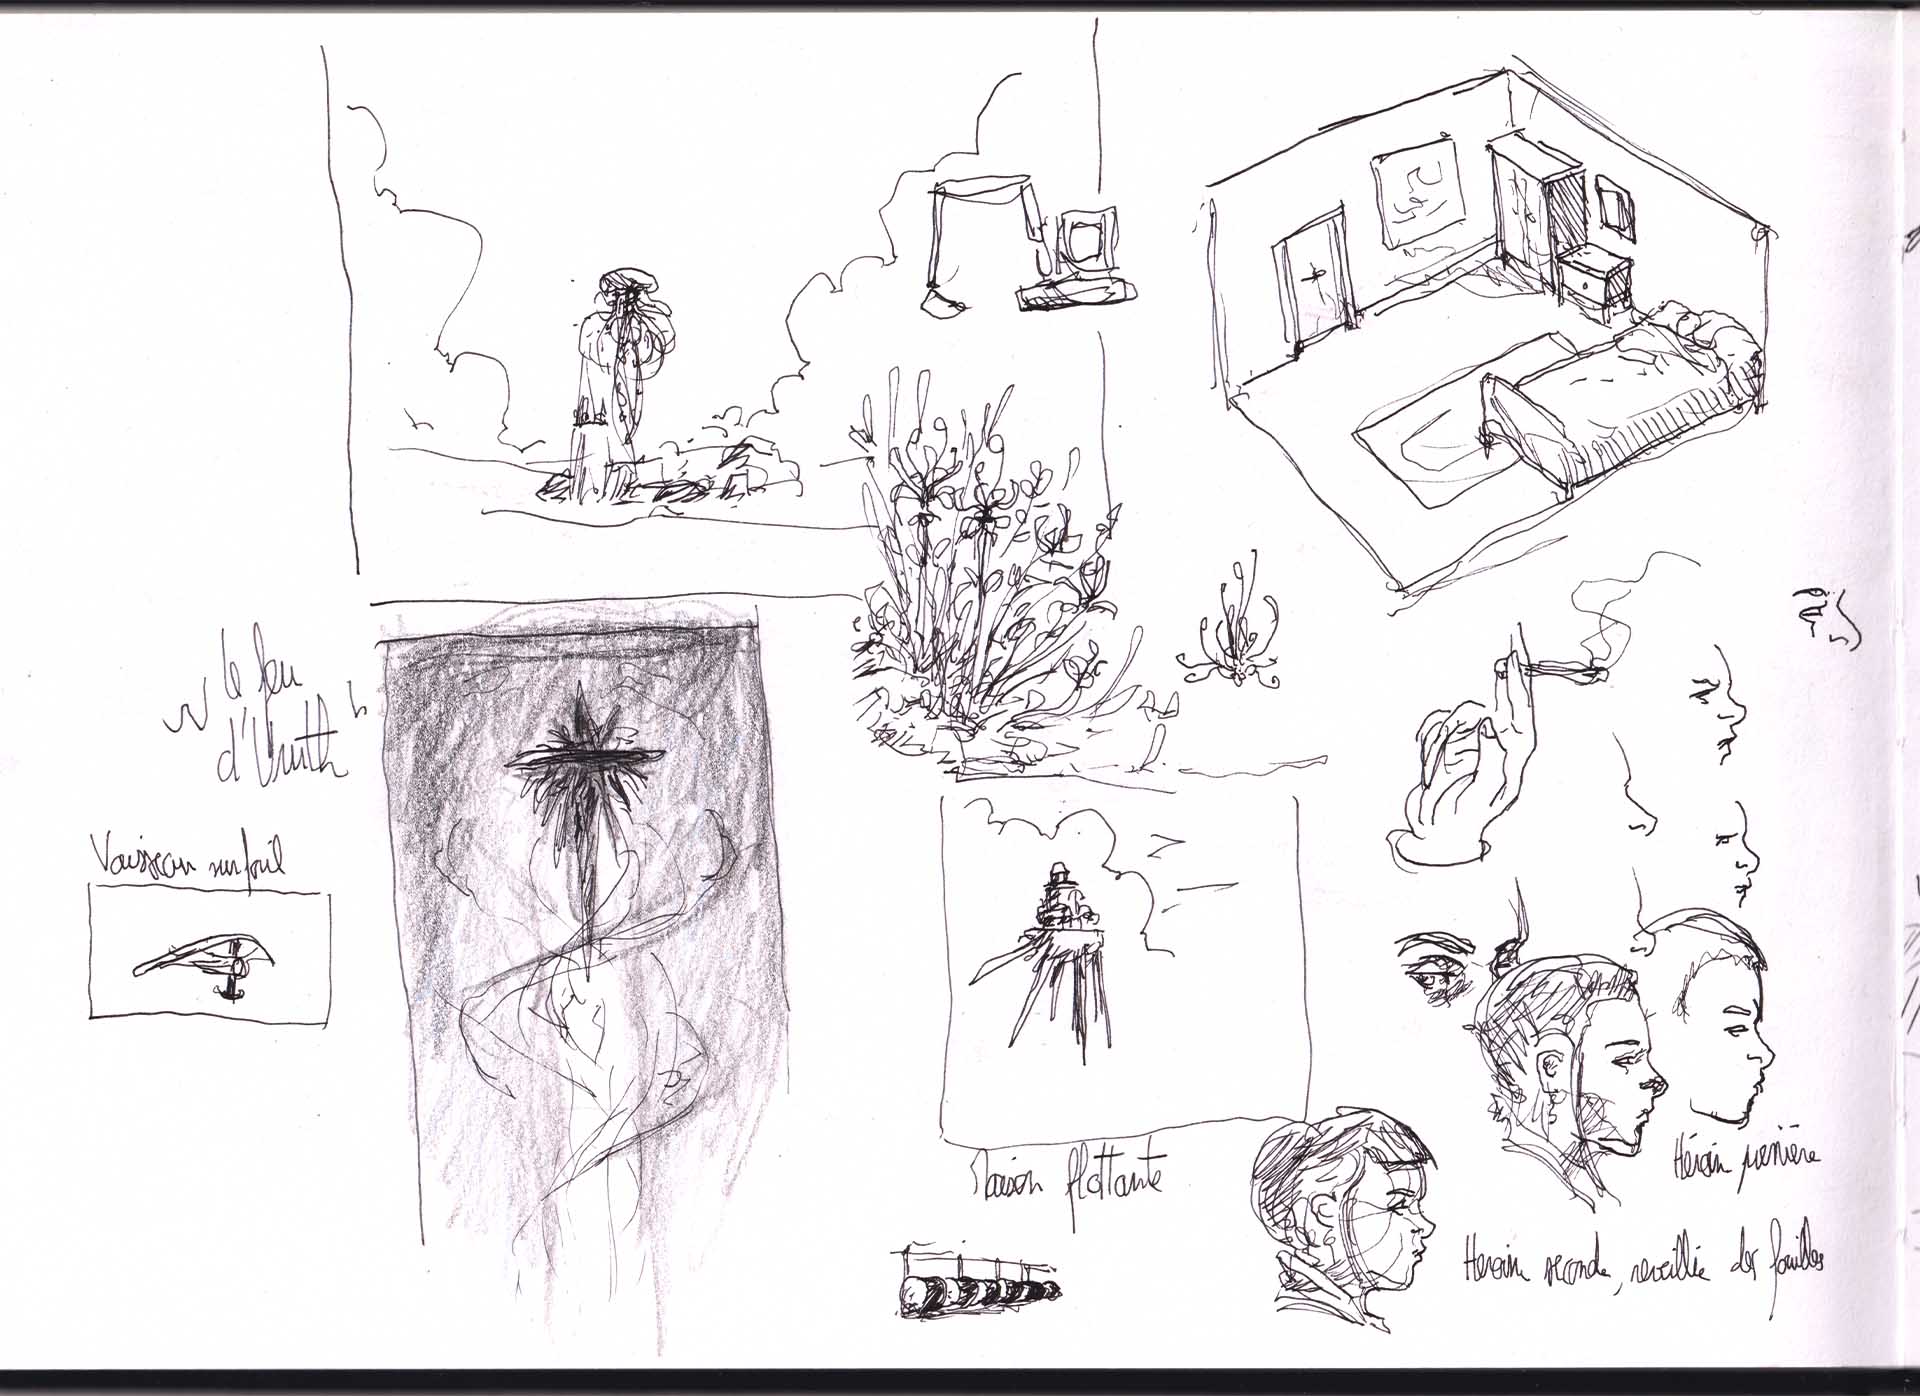 Le feu
d'Uruth
Vaisseau
Maison flottante
Héroïn première
Heroïn seconde, reveillée des fouilles